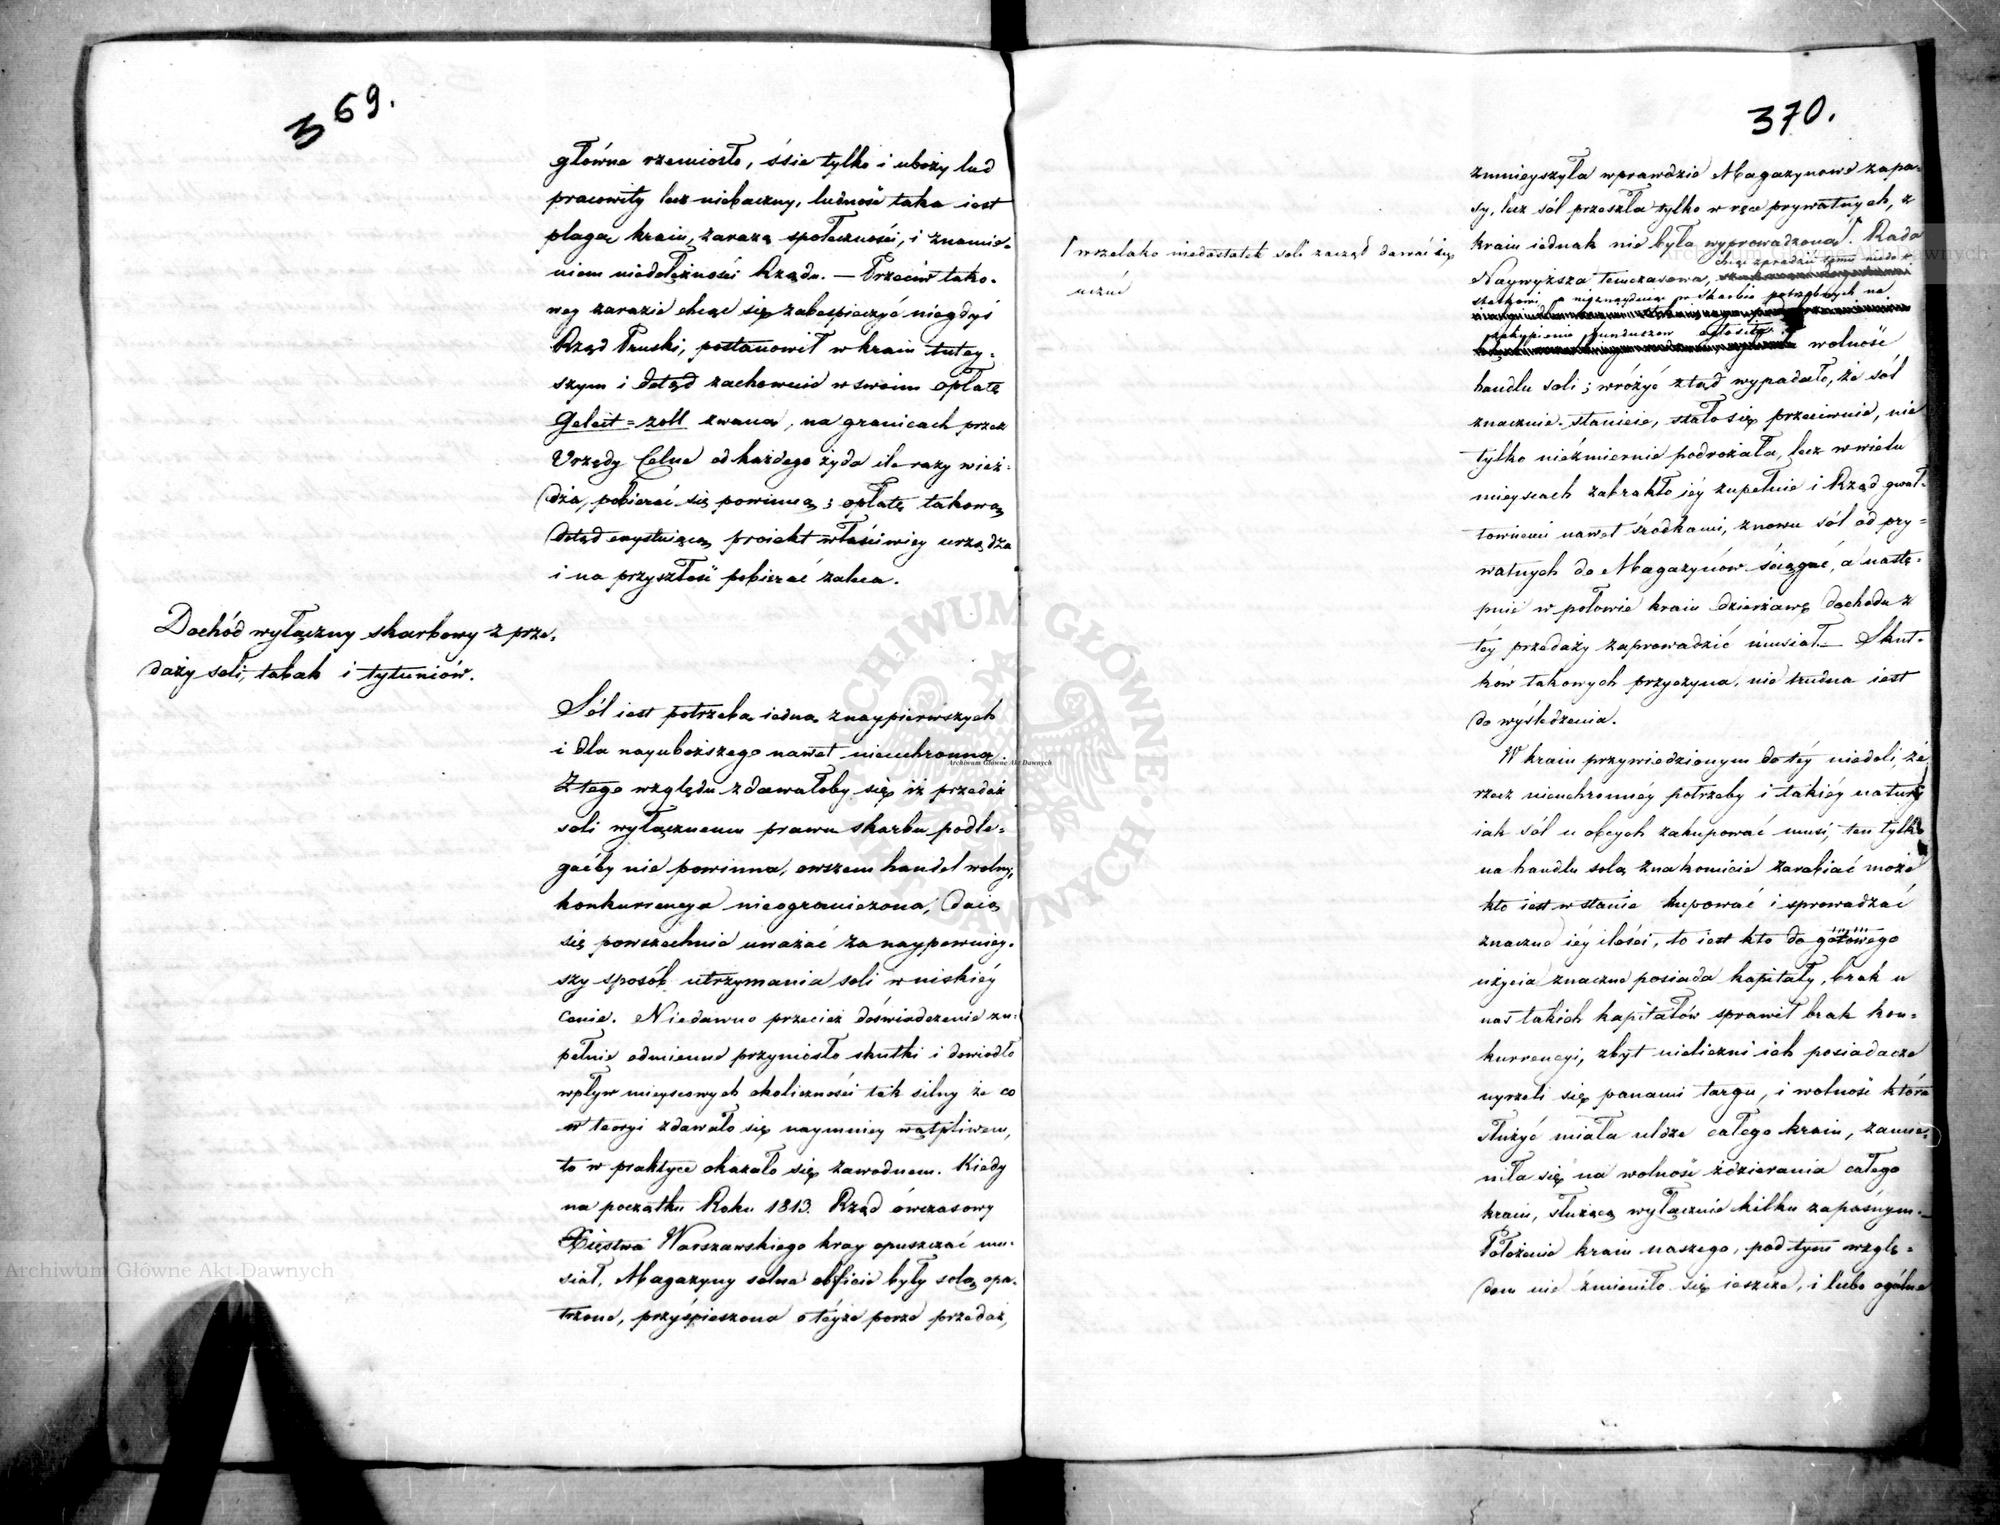 369.
główne rzemiosło, śsie tylko i uboży lud
pracowity lecz niebaczny, ludność taka iest
plagą kraiu, zarazą społeczności, i znamie-
niem niedołężności Rządu. — Przeciw tako-
wey zarazie chcąc się zabespieczyć niegdyś
Rząd Pruski, postanowił w kraiu tutey-
szym i dotąd zachowuie w swoim opłatę
Geleit=zoll zwaną, na granicach przez
Urzędy Celne od każdego żyda ile razy wież-
dża, pobierać się powinną; opłatę takową
dotąd exystuiącą proiekt właściwiey urządza
i na przyszłość pobierać zaleca.
Dochód wyłączny skarbowy z prze-
daży soli, tabak i tytuniów.
Sól iest potrzebą iedną z naypierwszych
i dla nayuboższego nawet nieuchronną.
Z tego względu zdawałoby się iż przedaż
soli wyłącznemu prawu skarbu podle-
gaćby nie powinna, owszem handel wolny,
konkurrencya nieograniczona, daią
się powszechnie uważać za naypewniey-
szy sposób utrzymania soli w niskiéy
cenie. Niedawno przecież doświadczenie zu-
pełnie odmienne przyniosło skutki i dowiodło
wpływ mieyscowych okoliczności tak silny że co
w teoryi zdawało się naymniey wątpliwem,
to w praktyce okazało się zawodnem. Kiedy
na początku Roku 1813. Rząd ówczasowy
Xięstwa Warszawskiego kray opuszczać mu-
siał, Magazyny solne obficie były solą opa-
trzone, przyśpieszona o téyże porze przedaż,
370.
zmnieyszyła wprawdzie Magazynowe zapa-
sy, lecz sól przeszła tylko w ręce prywatnych, z
kraiu iednak nie była wyprowadzona. Rada
wszelako niedostatek soli zaczął dawać się
uczuć
Naywyższa tymczasowa, chcąc zaradzić temu niedo-
statkowi, a nieznayduiąc w Skarbie potrzebnych na
zakupienie funduszow ogłosiła wolność
handlu soli; wróżyć ztąd wypadało, że sól
znacznie stanieie, stało się przeciwnie, nie
tylko niezmiernie podrożała, lecz w wielu
mieyscach zabrakło iéy zupełnie i Rząd gwał-
townemi nawet środkami, znowu sól od pry-
watnych do Magazynów ściągać, a nastę-
pnie w połowie kraiu dzierżawę dochodu z
téy przedaży zaprowadzić musiał. — Skut-
ków takowych przyczyna, nie trudna iest
do wyśledzenia.
W kraiu przywiedzionym do téy niedoli, że
rzecz nieuchronnéy potrzeby i takiéy natury
iak sól u obcych zakupować musi, ten tylko
na handlu solą znakomicie zarabiać może
kto iest w stanie kupować i sprowadzać
znaczne iéy ilości, to iest kto do gotowego
użycia znaczne posiada kapitały, brak u
nas takich kapitałów sprawił brak kon-
kurrencyi, zbyt nieliczni ich posiadacze
uyrzeli się panami targu, i wolność która
służyć miała uldze całego kraiu, zamie-
niła się na wolność zdzierania całego
kraiu, służącą wyłącznie kilku zapaśnym. —
Położenie kraiu naszego, pod tym wzglę-
dem nie zmieniło się ieszcze, i lubo ogólne
Archiwum Główne Akt Dawnych
Archiwum Główne Akt Dawnych
Archiwum Główne Akt Dawnych